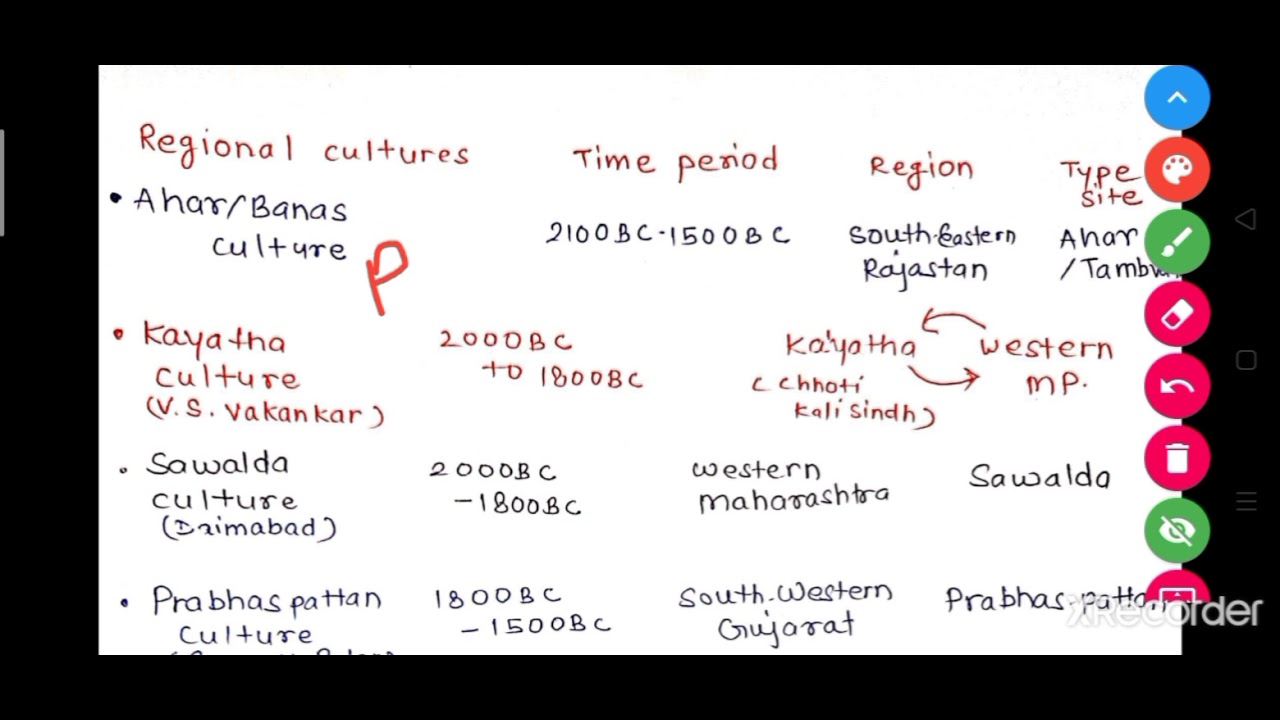 Regional cultures Time period Region Type
site
• Ahar/Banas
culture 2100BC-1500BC South-Eastern Ahar
P Rajastan
• Kayatha 2000BC Kayatha western
culture to 1800BC (Chhoti MP.
(V.S. Vakankar) Kalisindh)
• Sawalda 2000BC western Sawalda
culture -1800BC maharashtra
(Daimabad)
• Prabhas pattan 1800BC South-Western
culture -1500BC Gujarat Prabhas
XRecorder